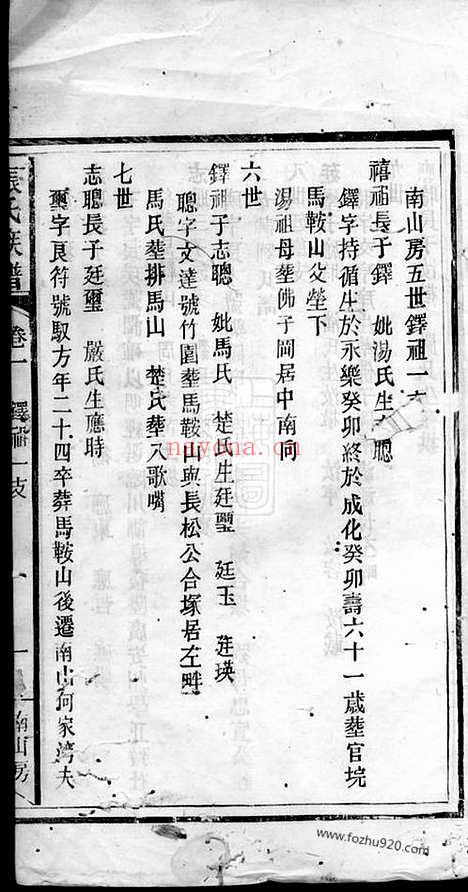 南山房五世鐸祖一支
禧祖長子鐸　妣湯氏生志聰
鐸字持循生於永樂癸卯終於成化癸卯壽六十一歲塟官垸
馬鞍山父塋下
湯祖母塟獅子岡居中南向
六世
鐸祖子志聰　妣馬氏　楚氏生廷璽　廷玉　廷瑛
聰字文達號竹園塟馬鞍山與長松公合塚居左畔
馬氏塟排馬山　楚氏塟八歌嘴
七世
志聰長子廷璽　嚴氏生應時
璽字良符號馭方年二十四卒葬馬鞍山後遷南山何家湾夫
張氏族譜　卷一　鐸祖一支　南山房
nayona.cn
www.fozhu920.com